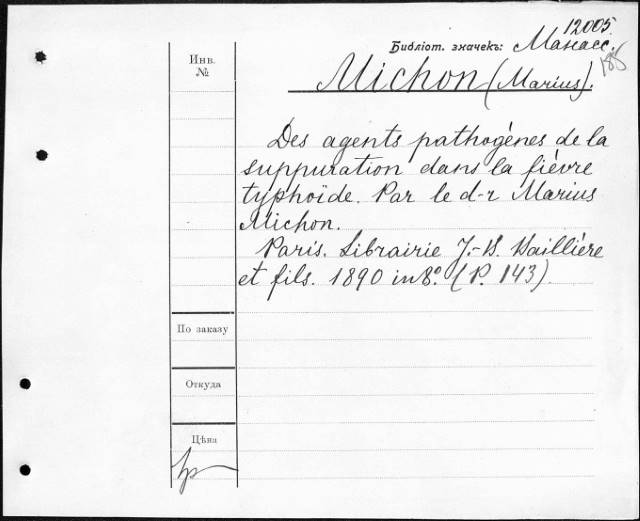 12005.
Библіот. значекъ: Манасс.
Инв.
№
Michon (Marius).
Des agents pathogènes de la
suppuration dans la fièvre
typhoïde. Par le d-r Marius
Michon.
Paris. Librairie J.-B. Baillière
et fils. 1890 in 8º. (P. 143).
По заказу
Откуда
Цѣна